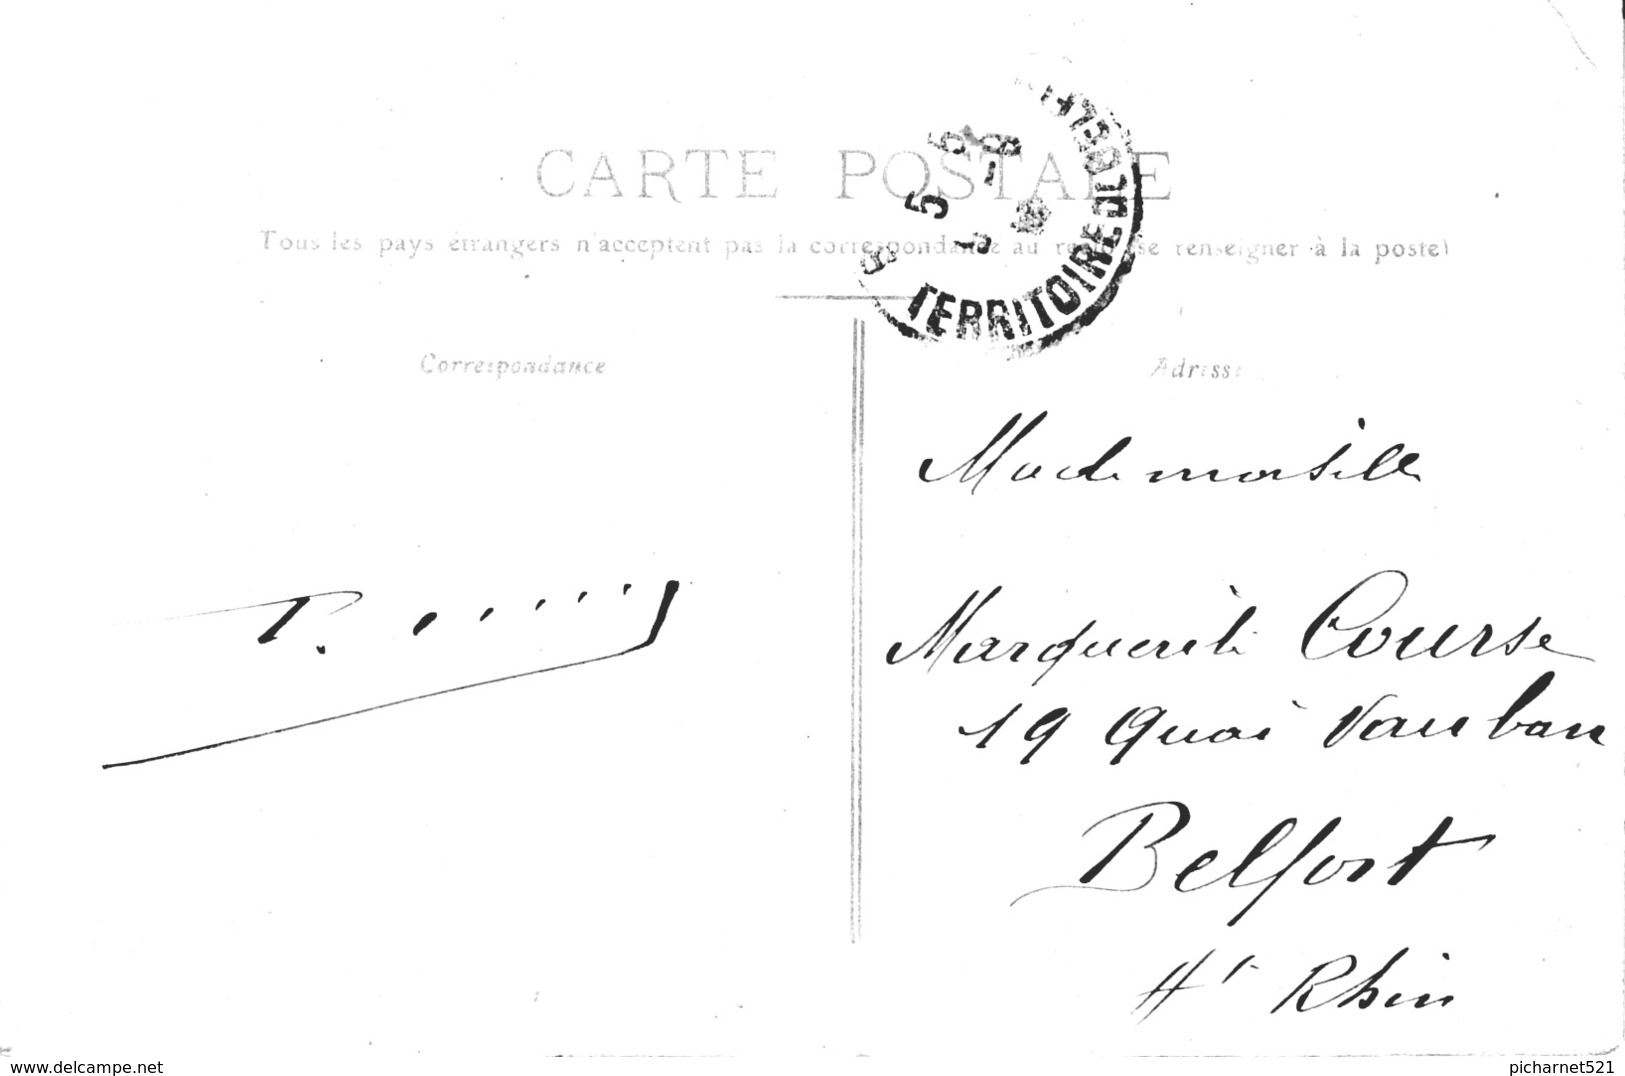 CARTE POSTALE
Tous les pays étrangers n'acceptent pas la correspondance au (se renseigner à la poste)
TERRITOIRE DE BELFORT
5 5
Correspondance
Adresse
Mademoiselle
Marguerite Course
19 Quai Vauban
Belfort
Ht Rhin
P.
www.delcampe.net
picharnet521